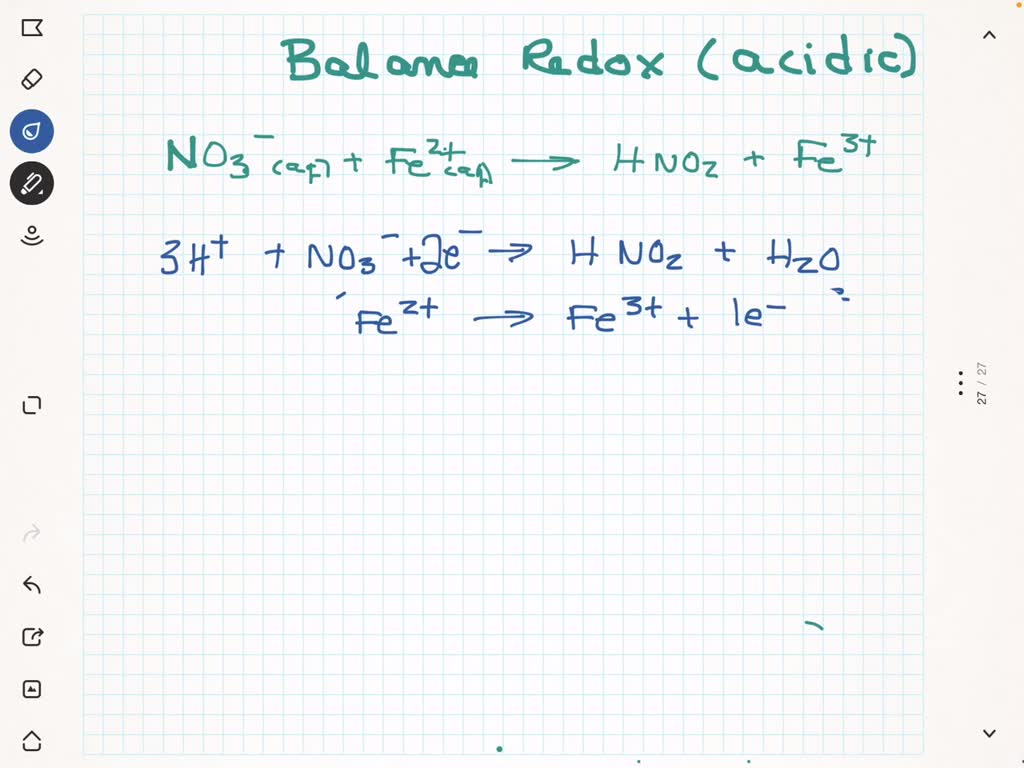 Balance Redox (acidic)
NO₃⁻(aq) + Fe²⁺(aq) → HNO₂ + Fe³⁺
3H⁺ + NO₃⁻ + 2e⁻ → HNO₂ + H₂O
Fe²⁺ → Fe³⁺ + 1e⁻
27 / 27